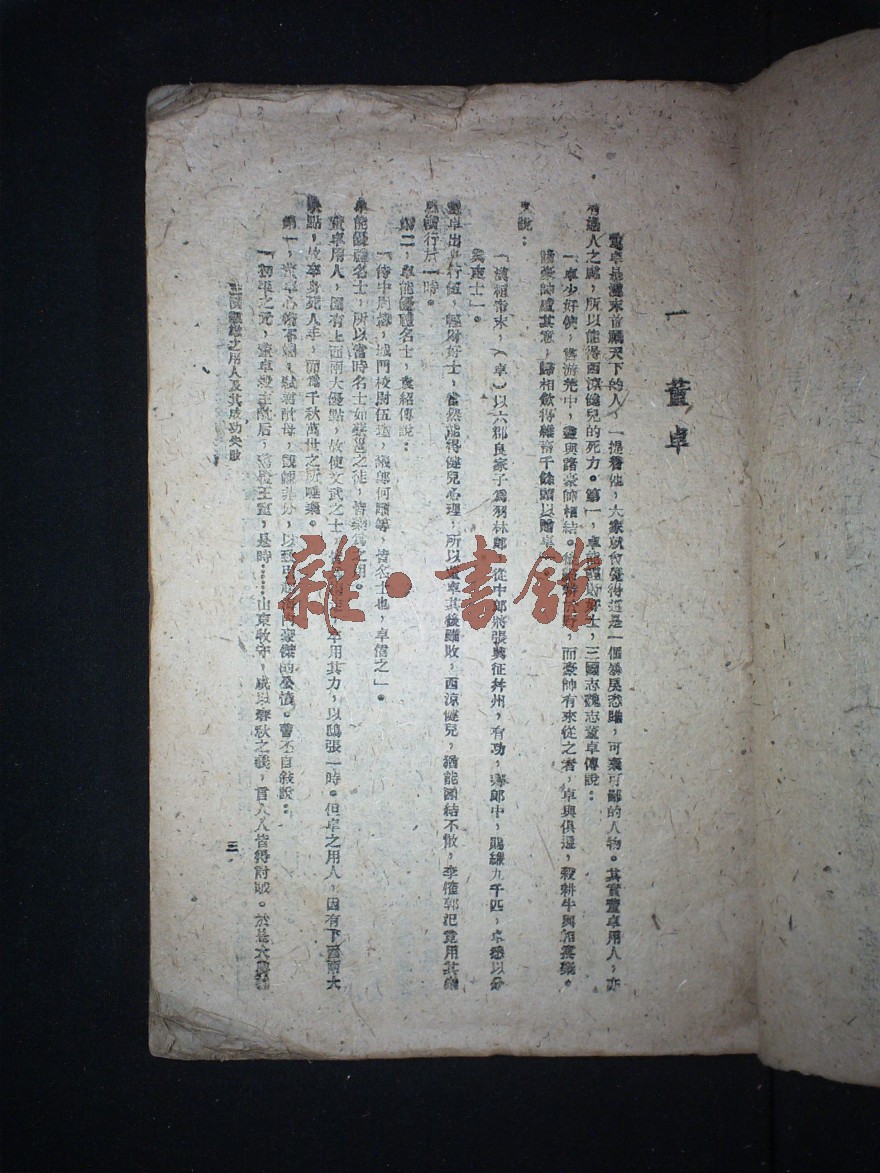 一 董卓
董卓是漢末首禍天下的人，一提着他，大家就會覺得這是一個暴戾恣睢，可棄可鄙的人物。其實董卓用人，亦
有過人之處，所以能得西涼健兒的死力。第一，卓能輕財好士，三國志魏志董卓傳說：
「卓少好俠，嘗游羌中，盡與諸豪帥相結。後歸耕於野，而豪帥有來從之者，卓與俱還，殺耕牛與相宴樂。
諸豪帥感其意，歸相斂得雜畜千餘頭以贈卓」
又說：
「漢桓帝末，（卓）以六郡良家子為羽林郎，從中郎將張奐征幷州，有功，拜郎中，賜縑九千匹，卓悉以分
與吏士」。
董卓出身行伍，輕財好士，當然能得健兒心理，所以董卓其後雖敗，西涼健兒，猶能團結不散，李傕郭汜竟用其
橫行於一時。
第二，卓能優禮名士，袁紹傳說：
「侍中周毖，城門校尉伍瓊，議郎何顒等，皆名士也，卓信之」。
卓能優禮名士，所以當時名士如蔡邕之徒，皆樂為之用。
董卓用人，固有上面兩大優點，故使文武之士，卒用其力，以鴟張一時。但卓之用人，因有下面兩大
缺點，故卒身死人手，而為千秋萬世之所唾棄。
第一，董卓心術不端，弒君酖母，覬覦非分，以致引起海內豪傑的公憤。曹丕自敍說：
「初平之元，董卓殺主酖后，蕩覆王室，是時……山東牧守，咸以春秋之義，言人人皆得討賊。於是大興義
三國領袖之用人及其成功失敗
三
雜·書館